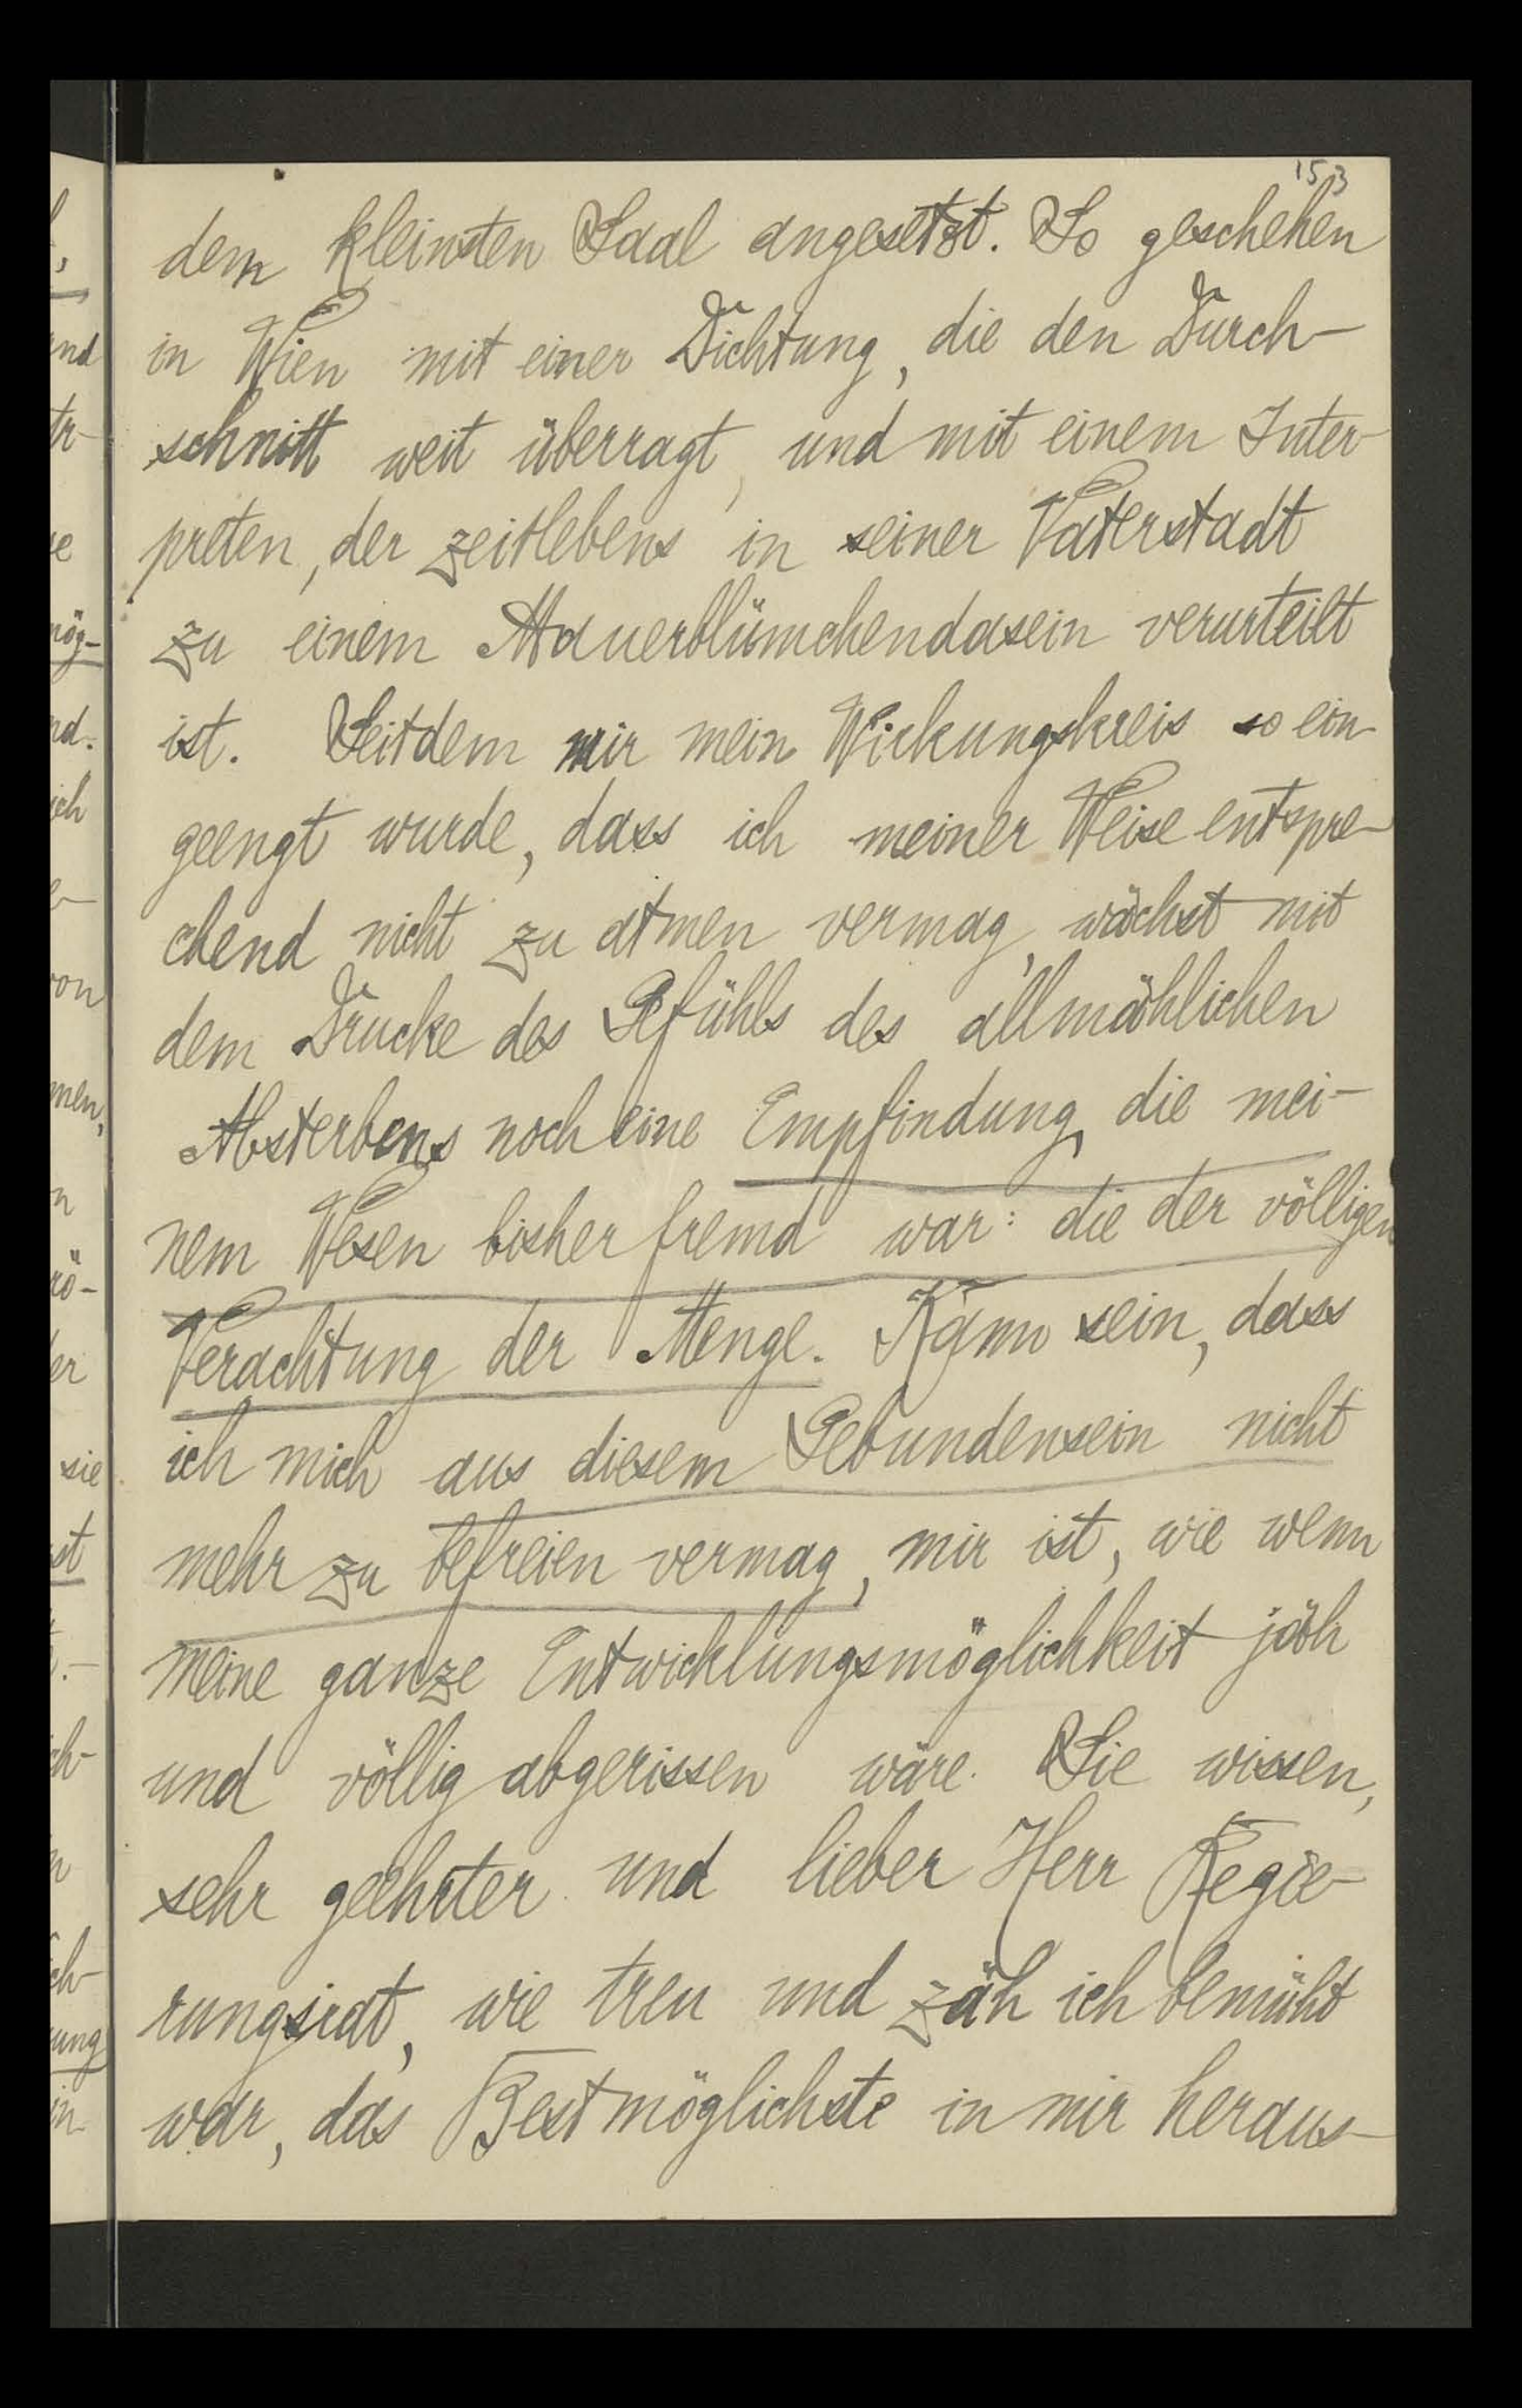 153
dem kleinsten Saal angesetzt. So geschehen
in Wien mit einer Dichtung, die den Durch-
schnitt weit überragt, und mit einem Inter-
preten, der zeitlebens in seiner Vaterstadt
zu einem Mauerblümchendasein verurteilt
ist. Seitdem mir mein Wirkungskreis so ein-
geengt wurde, dass ich meiner Weise entspre-
chend nicht zu atmen vermag, wächst mit
dem Drucke des Gefühls des allmählichen
Absterbens noch eine Empfindung, die mei-
nem Wesen bisher fremd war: die der völligen
Verachtung der Menge. Kann sein, dass
ich mich aus diesem Gebundensein nicht
mehr zu befreien vermag, mir ist, wie wenn
meine ganze Entwicklungsmöglichkeit jäh
und völlig abgerissen wäre. Sie wissen,
sehr geehrter und lieber Herr Regie-
rungsrat, wie treu und zäh ich bemüht
war, das Bestmöglichste in mir heraus-